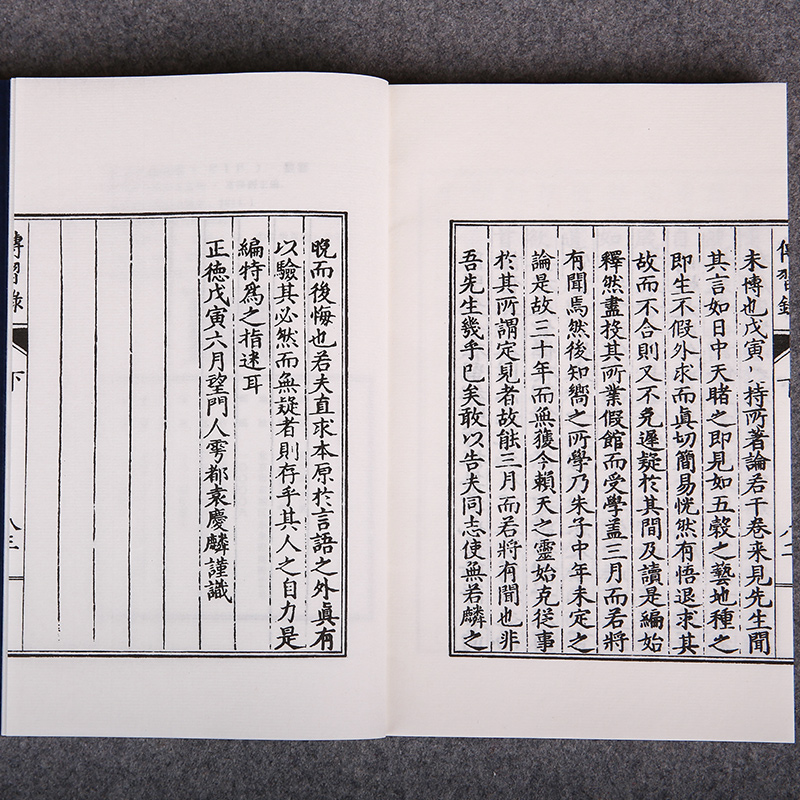 未博也戊寅持所著論若干卷来見先生聞
其言如日中天睹之即見如五穀之藝地種之
即生不假外求而眞切簡易恍然有悟退求其
故而不合則又不免遲疑於其間及讀是編始
釋然盡投其所業假館而受學蓋三月而若將
有聞焉然後知嚮之所學乃朱子中年未定之
論是故三十年而無獲今賴天之靈始克從事
於其所謂定見者故能三月而若將有聞也非
吾先生幾乎已矣敢以告夫同志使無若麟之
傳習錄
下
晚而後悔也若夫直求本原於言語之外眞有
以驗其必然而無疑者則存乎其人之自力是
編特爲之指迷耳
正德戊寅六月望門人雩都袁慶麟謹識
傳習錄
下